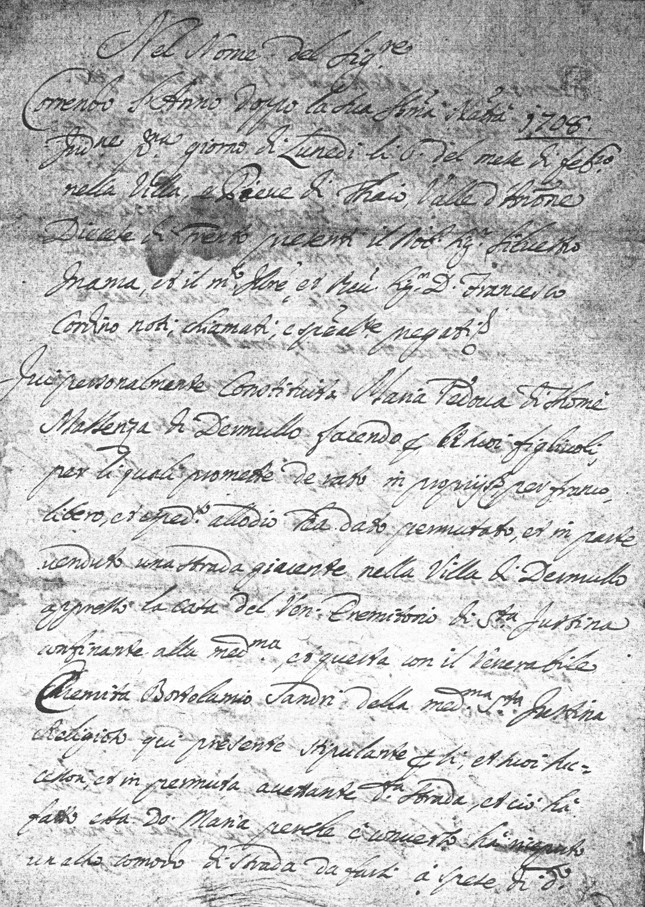 Nel Nome del Sig.re
Correndo l'Anno doppo la sua Natta 1708.
Ind.ne p.ma giorno di Lunedi li 6. del mese di feb.ro
nella Villa, e Pieve di Thaio, Valle d'Anone
Diocese di Trento presenti il Nob. Sig.r Silvestro
Inama, et il m.o Ill.re et Rev. Sig.r D. Francesco
noti, chiamati, e pregati
Qui personalmente Constituita Maria Vedova di Thomè
Mattenza di Dermullo facendo p li suoi figlivoli,
per li quali promette de rato in per franco,
libero, et exped.o allodio ha dato permutato, et in parte
venduto una strada giacente nella Villa di Dermullo
appresso la casa del Ven: Eremitorio di S.ta Justina
confinante alla med.ma et questa con il Venerabile
Eremita Bortolamio Tandri della med.ma S.ta Justina
Religioso qui presente stipulante p li, et suoi su=
cessori, et in permuta accettante d.ta strada, et ciò hà
fatto essa Do: Maria perche è converso hà
un altro comodo di strada da farsi à spese di d.o